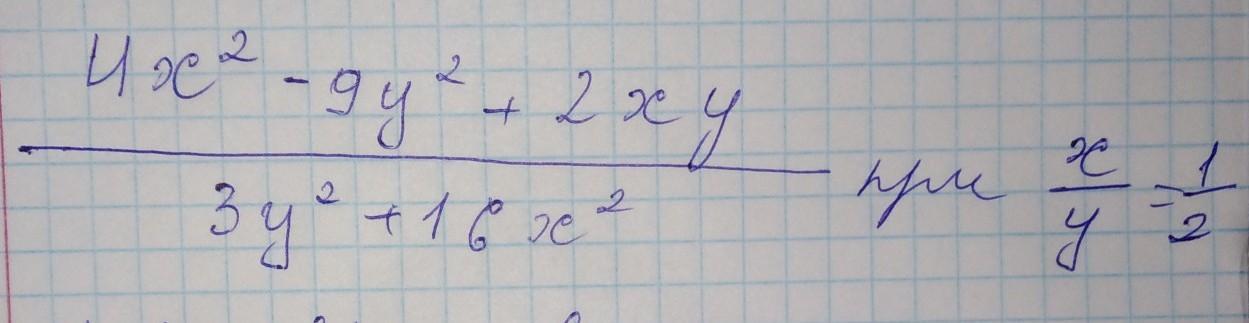 4x² - 9y² + 2xy
3y² + 16x²
при x/y = 1/2